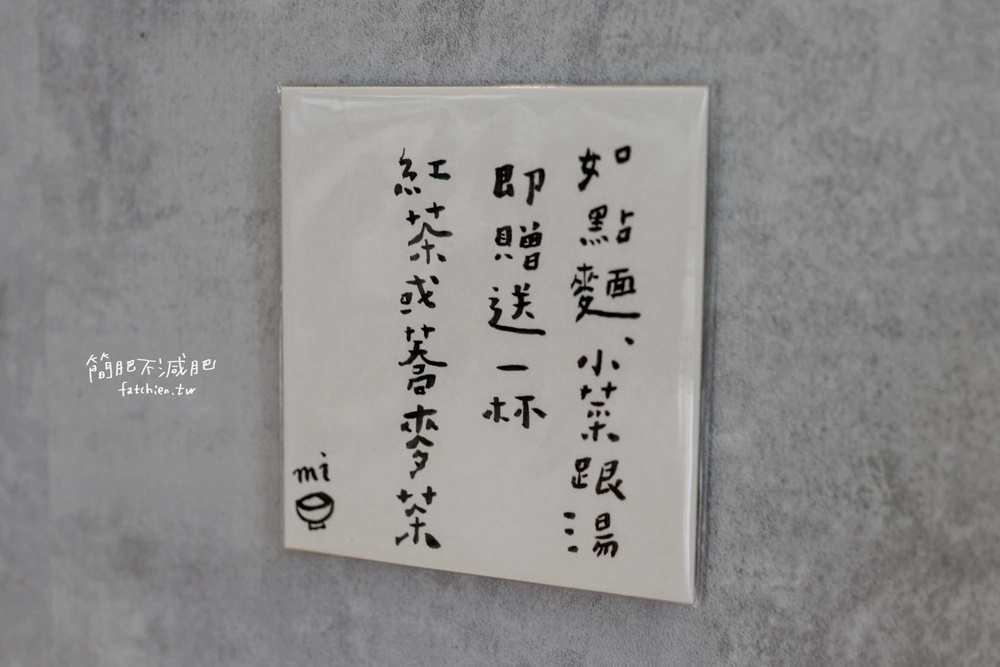 如點麵、小菜跟湯
即贈送一杯
紅茶或蕎麥茶
mi
簡肥不減肥
fatchien.tw